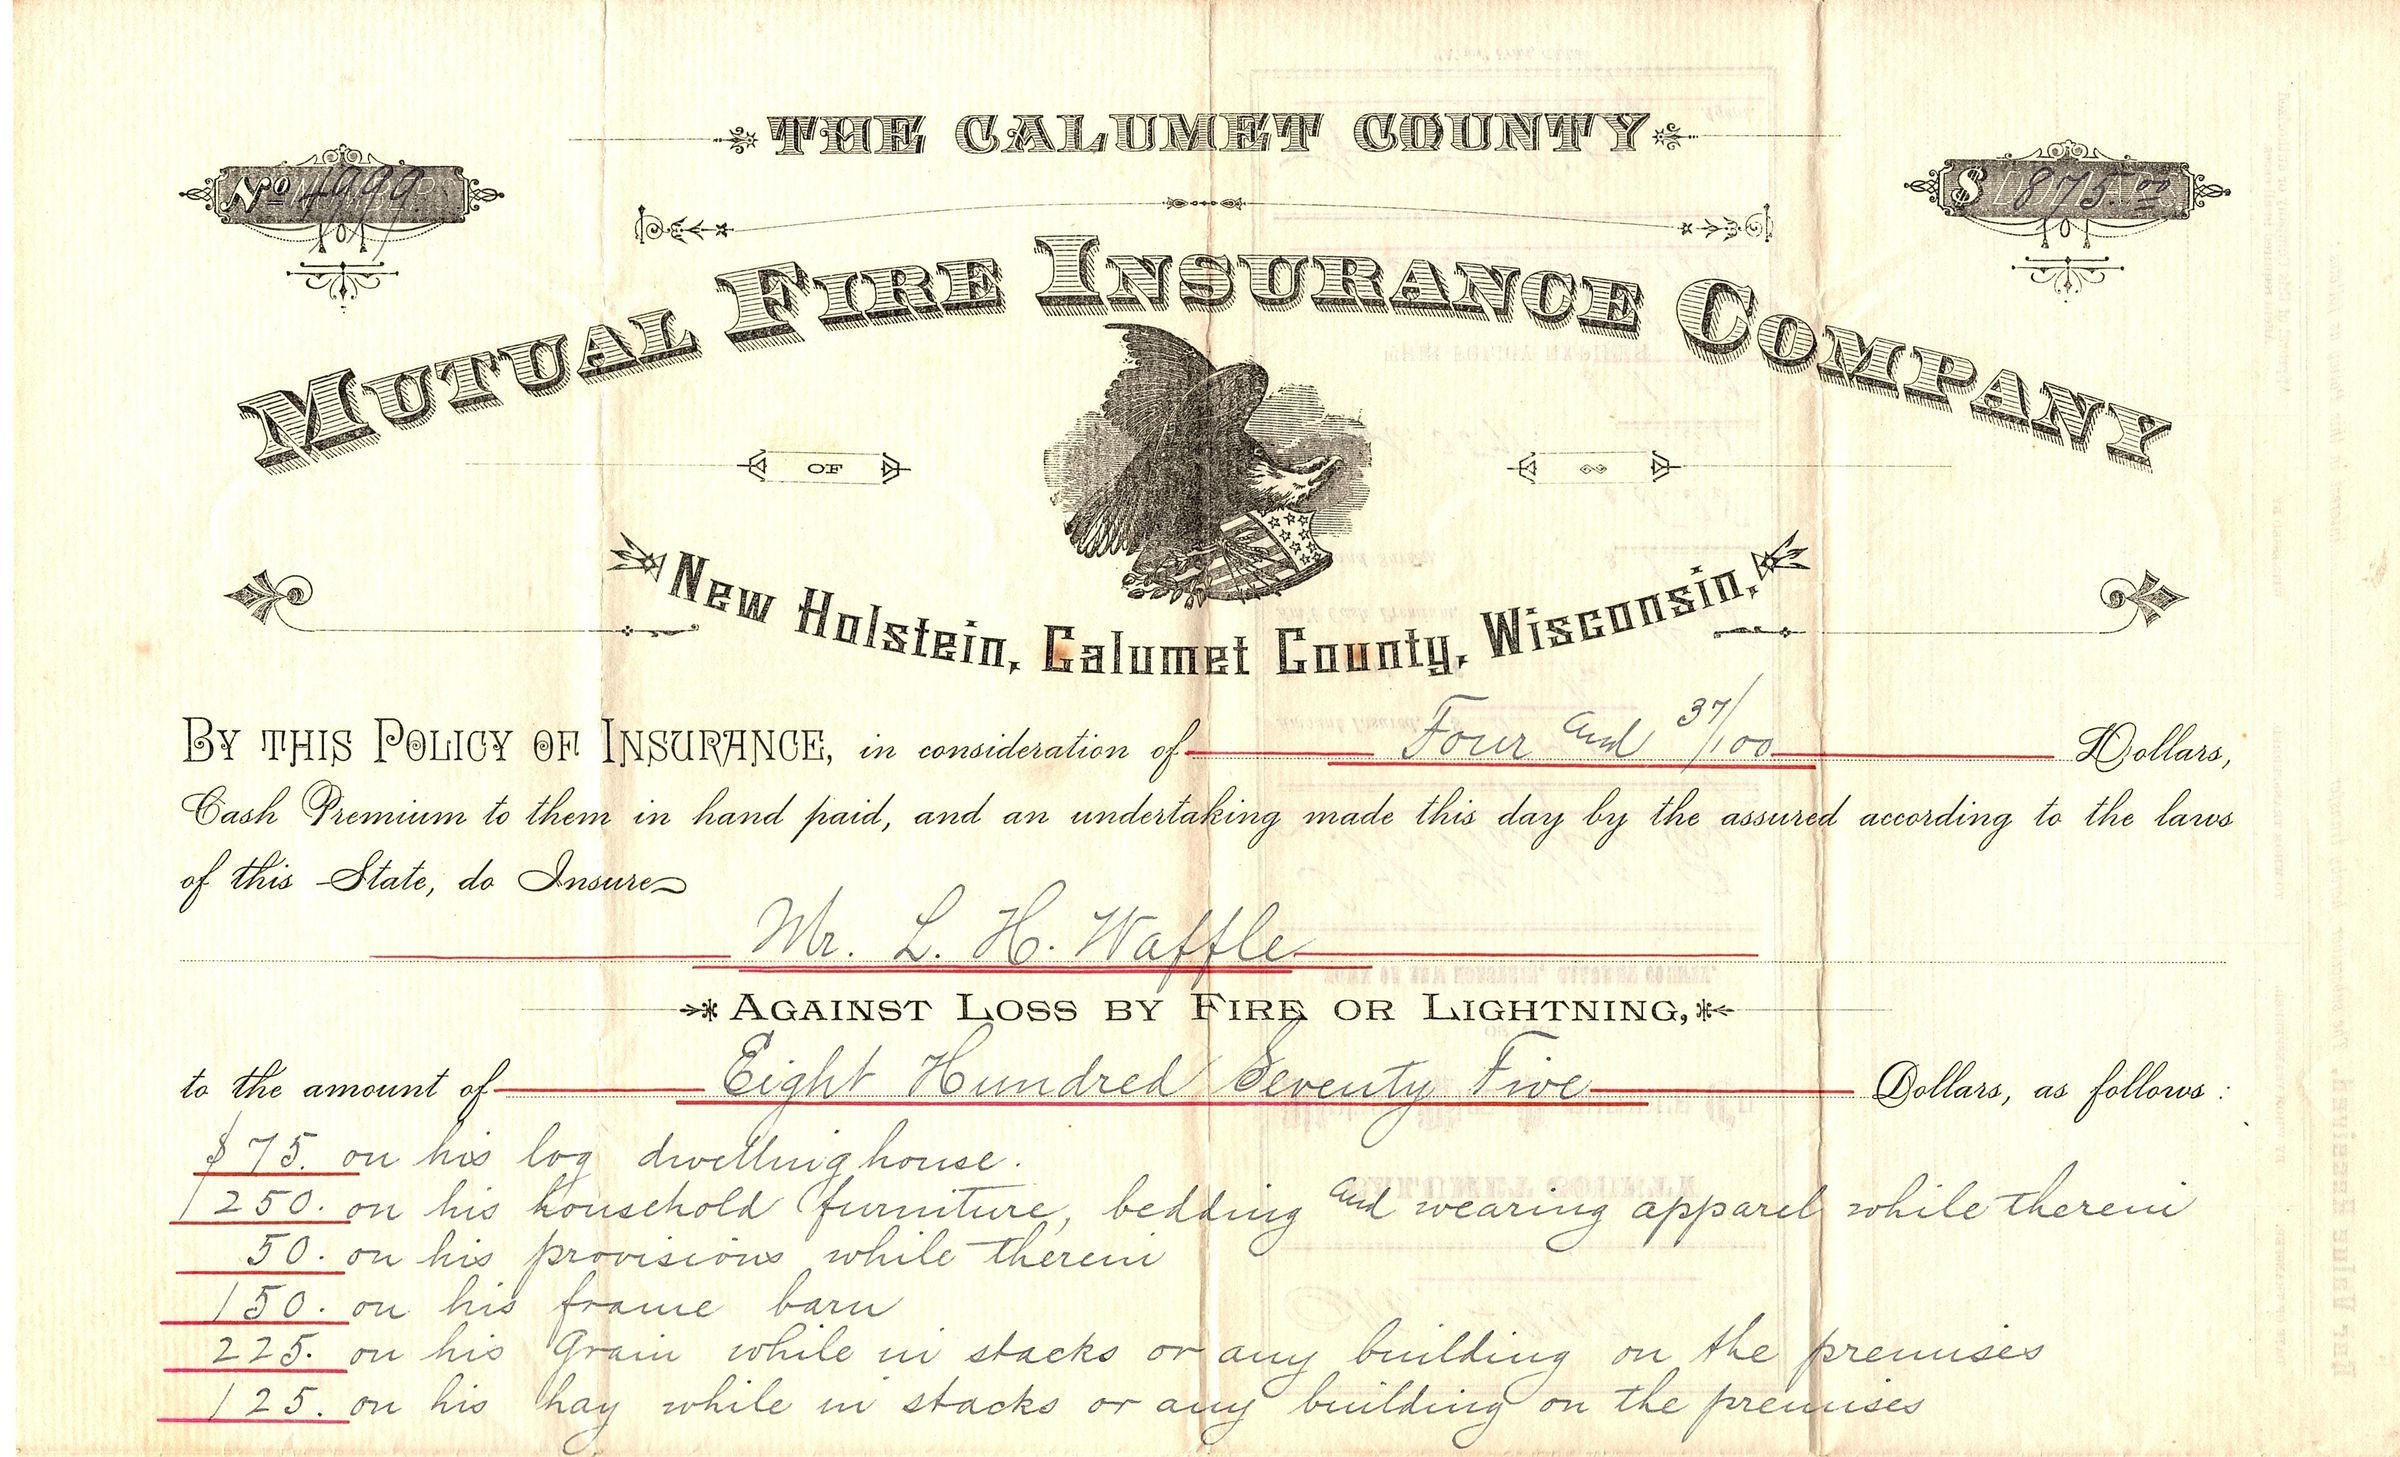 THE CALUMET COUNTY
No 4999
$ 875.00
MUTUAL FIRE INSURANCE COMPANY
OF
New Holstein, Calumet County, Wisconsin,
BY THIS POLICY OF INSURANCE, in consideration of Four and 37/100 Dollars,
Cash Premium to them in hand paid, and an undertaking made this day by the assured according to the laws
of this State, do Insure
Mr. L. H. Waffle
AGAINST LOSS BY FIRE OR LIGHTNING,
to the amount of Eight Hundred Seventy Five Dollars, as follows:
$75. on his log dwelling house.
250. on his household furniture, bedding and wearing apparel while therein
50. on his provisions while therein
150. on his frame barn
225. on his Grain while in stacks or any building on the premises
125. on his hay while in stacks or any building on the premises